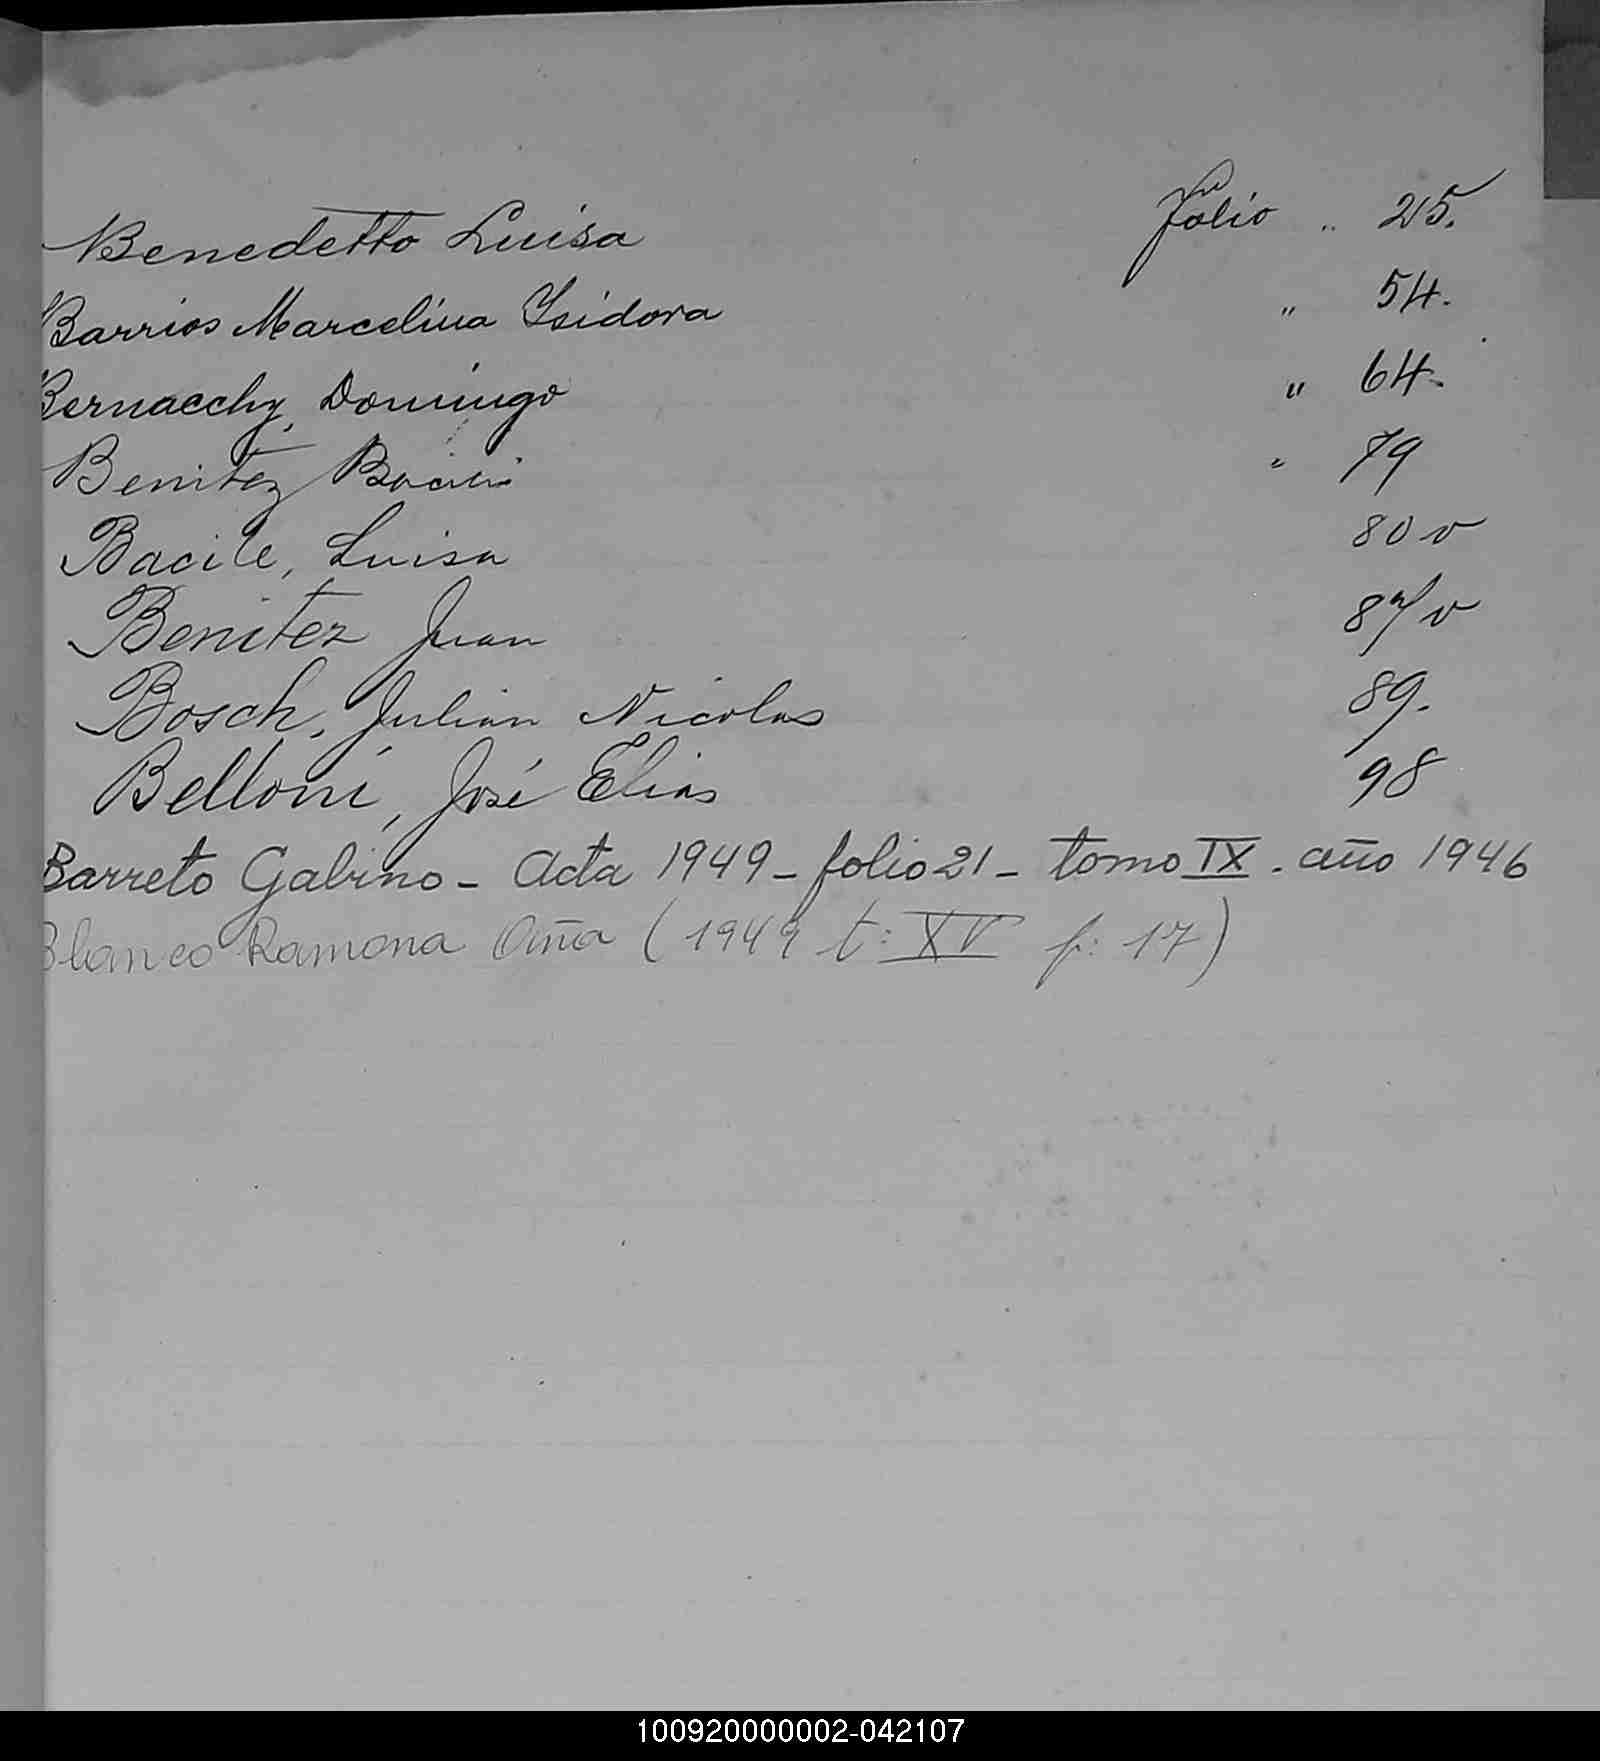 Benedetto Luisa Folio " 25.
Barrios Marcelina Isidora " 54.
Bernacchy, Domingo " 64.
Benitez " 79
Bacile, Luisa 80 v
Benitez Juan 87 v
Bosch, Julian Nicolas 89.
Belloni, José Elias 98
Barreto Gabino - Acta 1949 - folio 21 - tomo IX - año 1946
Blanco Ramona Aña (1949 t: XV f: 17)
100920000002-042107